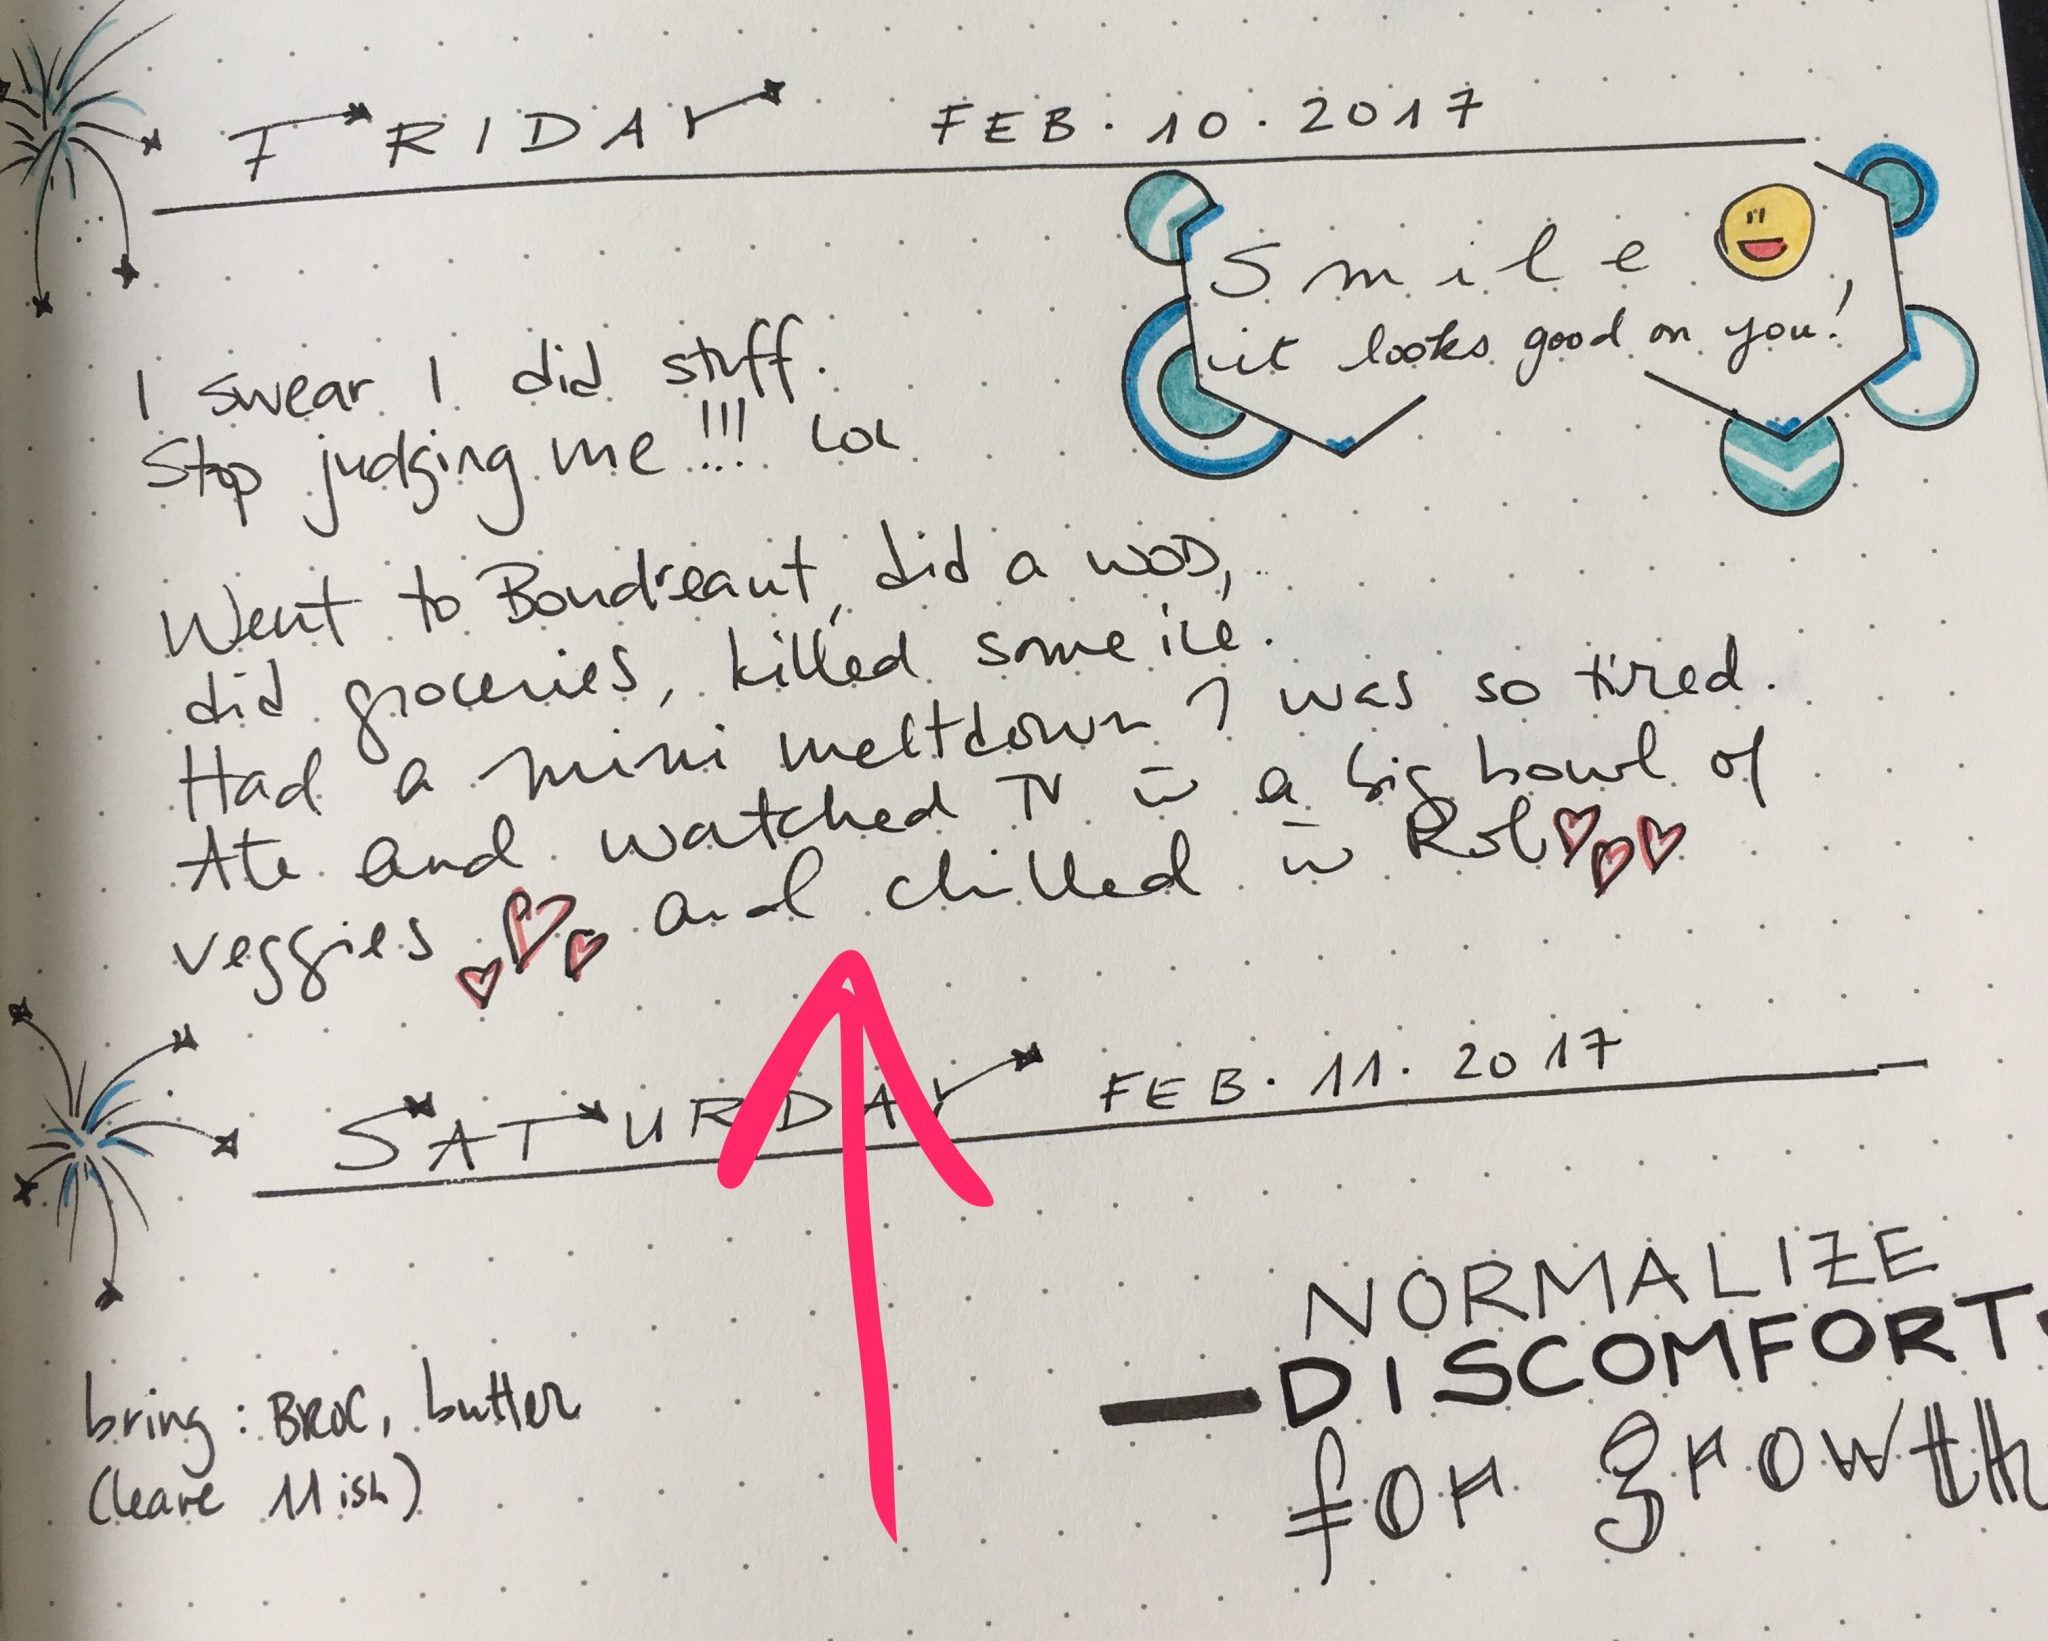 FRIDAY FEB. 10. 2017
Smile,
it looks good on you!
I swear I did stuff.
Stop judging me!!! LOL
Went to Boudreaut, did a WOD,
did groceries, killed some ice.
Had a mini meltdown I was so tired.
Ate and watched TV w̄ a big bowl of
veggies and chilled w̄ Rob
SATURDAY FEB. 11. 2017
NORMALIZE
—DISCOMFORT
for growth
bring: BROC, butter
(leave 11ish)